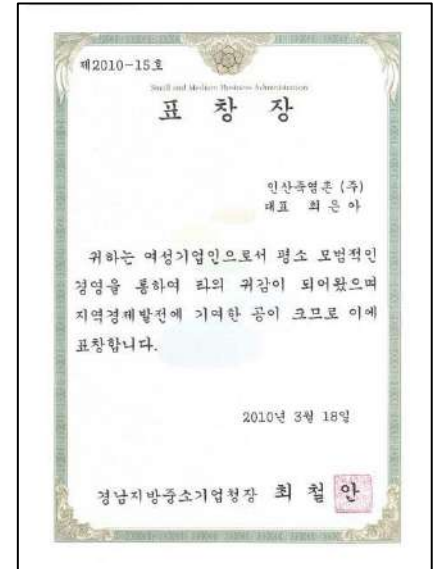 제2010-15호
Small and Medium Business Administration
표 창 장
인산죽염촌 (주)
대표 최은아
귀하는 여성기업인으로서 평소 모범적인
경영을 통하여 타의 귀감이 되어왔으며
지역경제발전에 기여한 공이 크므로 이에
표창합니다.
2010년 3월 18일
경남지방중소기업청장 최 철 안